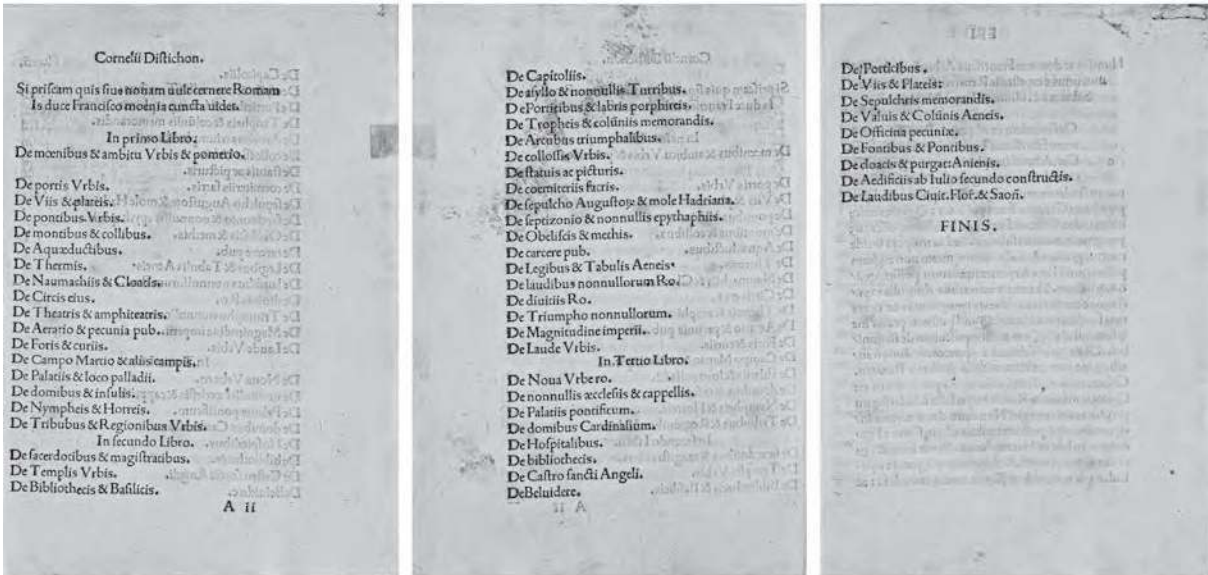 Cornelii Diſtichon.
Si priſcam quis ſiue nouam uult cernere Romam
Is duce Franciſco mœnia cuncta uidet.
In primo Libro.
De mœnibus & ambitu Vrbis & pomerio.
De portis Vrbis.
De Viis & plateis.
De pontibus Vrbis.
De montibus & collibus.
De Aquæductibus.
De Thermis.
De Naumachiis & Cloacis.
De Circis eius.
De Theatris & amphiteatris.
De Aerario & pecunia pub.
De Foris & curiis.
De Campo Martio & aliis campis.
De Palatiis & loco palladii.
De domibus & inſulis.
De Nympheis & Horreis.
De Tribubus & Regionibus Vrbis.
In ſecundo Libro.
De ſacerdotibus & magiſtratibus.
De Templis Vrbis.
De Bibliothecis & Baſilicis.
A ii
De Capitoliis.
De aſyllo & nonnullis Turribus.
De Porticibus & labris porphireis.
De Tropheis & colūniis memorandis.
De Arcubus triumphalibus.
De colloſſis Vrbis.
De ſtatuis ac picturis.
De coemiteriis ſacris.
De ſepulcho Auguſtoꝝ & mole Hadriana.
De ſeptizonio & nonnullis epythaphiis.
De Obeliſcis & methis.
De carcere pub.
De Legibus & Tabulis Aeneis.
De laudibus nonnullorum Ro.
De diuitiis Ro.
De Triumpho nonnullorum.
De Magnitudine imperii.
De Laude Vrbis.
In Tertio Libro.
De Noua Vrbe ro.
De nonnullis æccleſiis & cappellis.
De Palatiis pontificum.
De domibus Cardinalium.
De Hoſpitalibus.
De bibliothecis.
De Caſtro ſancti Angeli.
De Beluidere.
De Porticibus.
De Viis & Plateis.
De Sepulchris memorandis.
De Valuis & Colūnis Aeneis.
De Officina pecuniæ.
De Fontibus & Pontibus.
De cloacis & purgat. Anienis.
De Aedificiis ab Iulio ſecundo conſtructis.
De Laudibus Ciuit. Flor. & Saoñ.
FINIS.